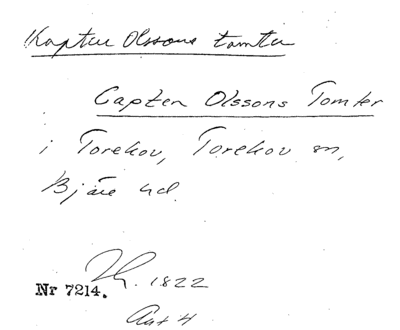 Kapten Olssons tomter
Capten Olssons Tomter
i Torekov, Torekov sn,
Bjäre hd.
1822
Nr 7214.
Akt 4